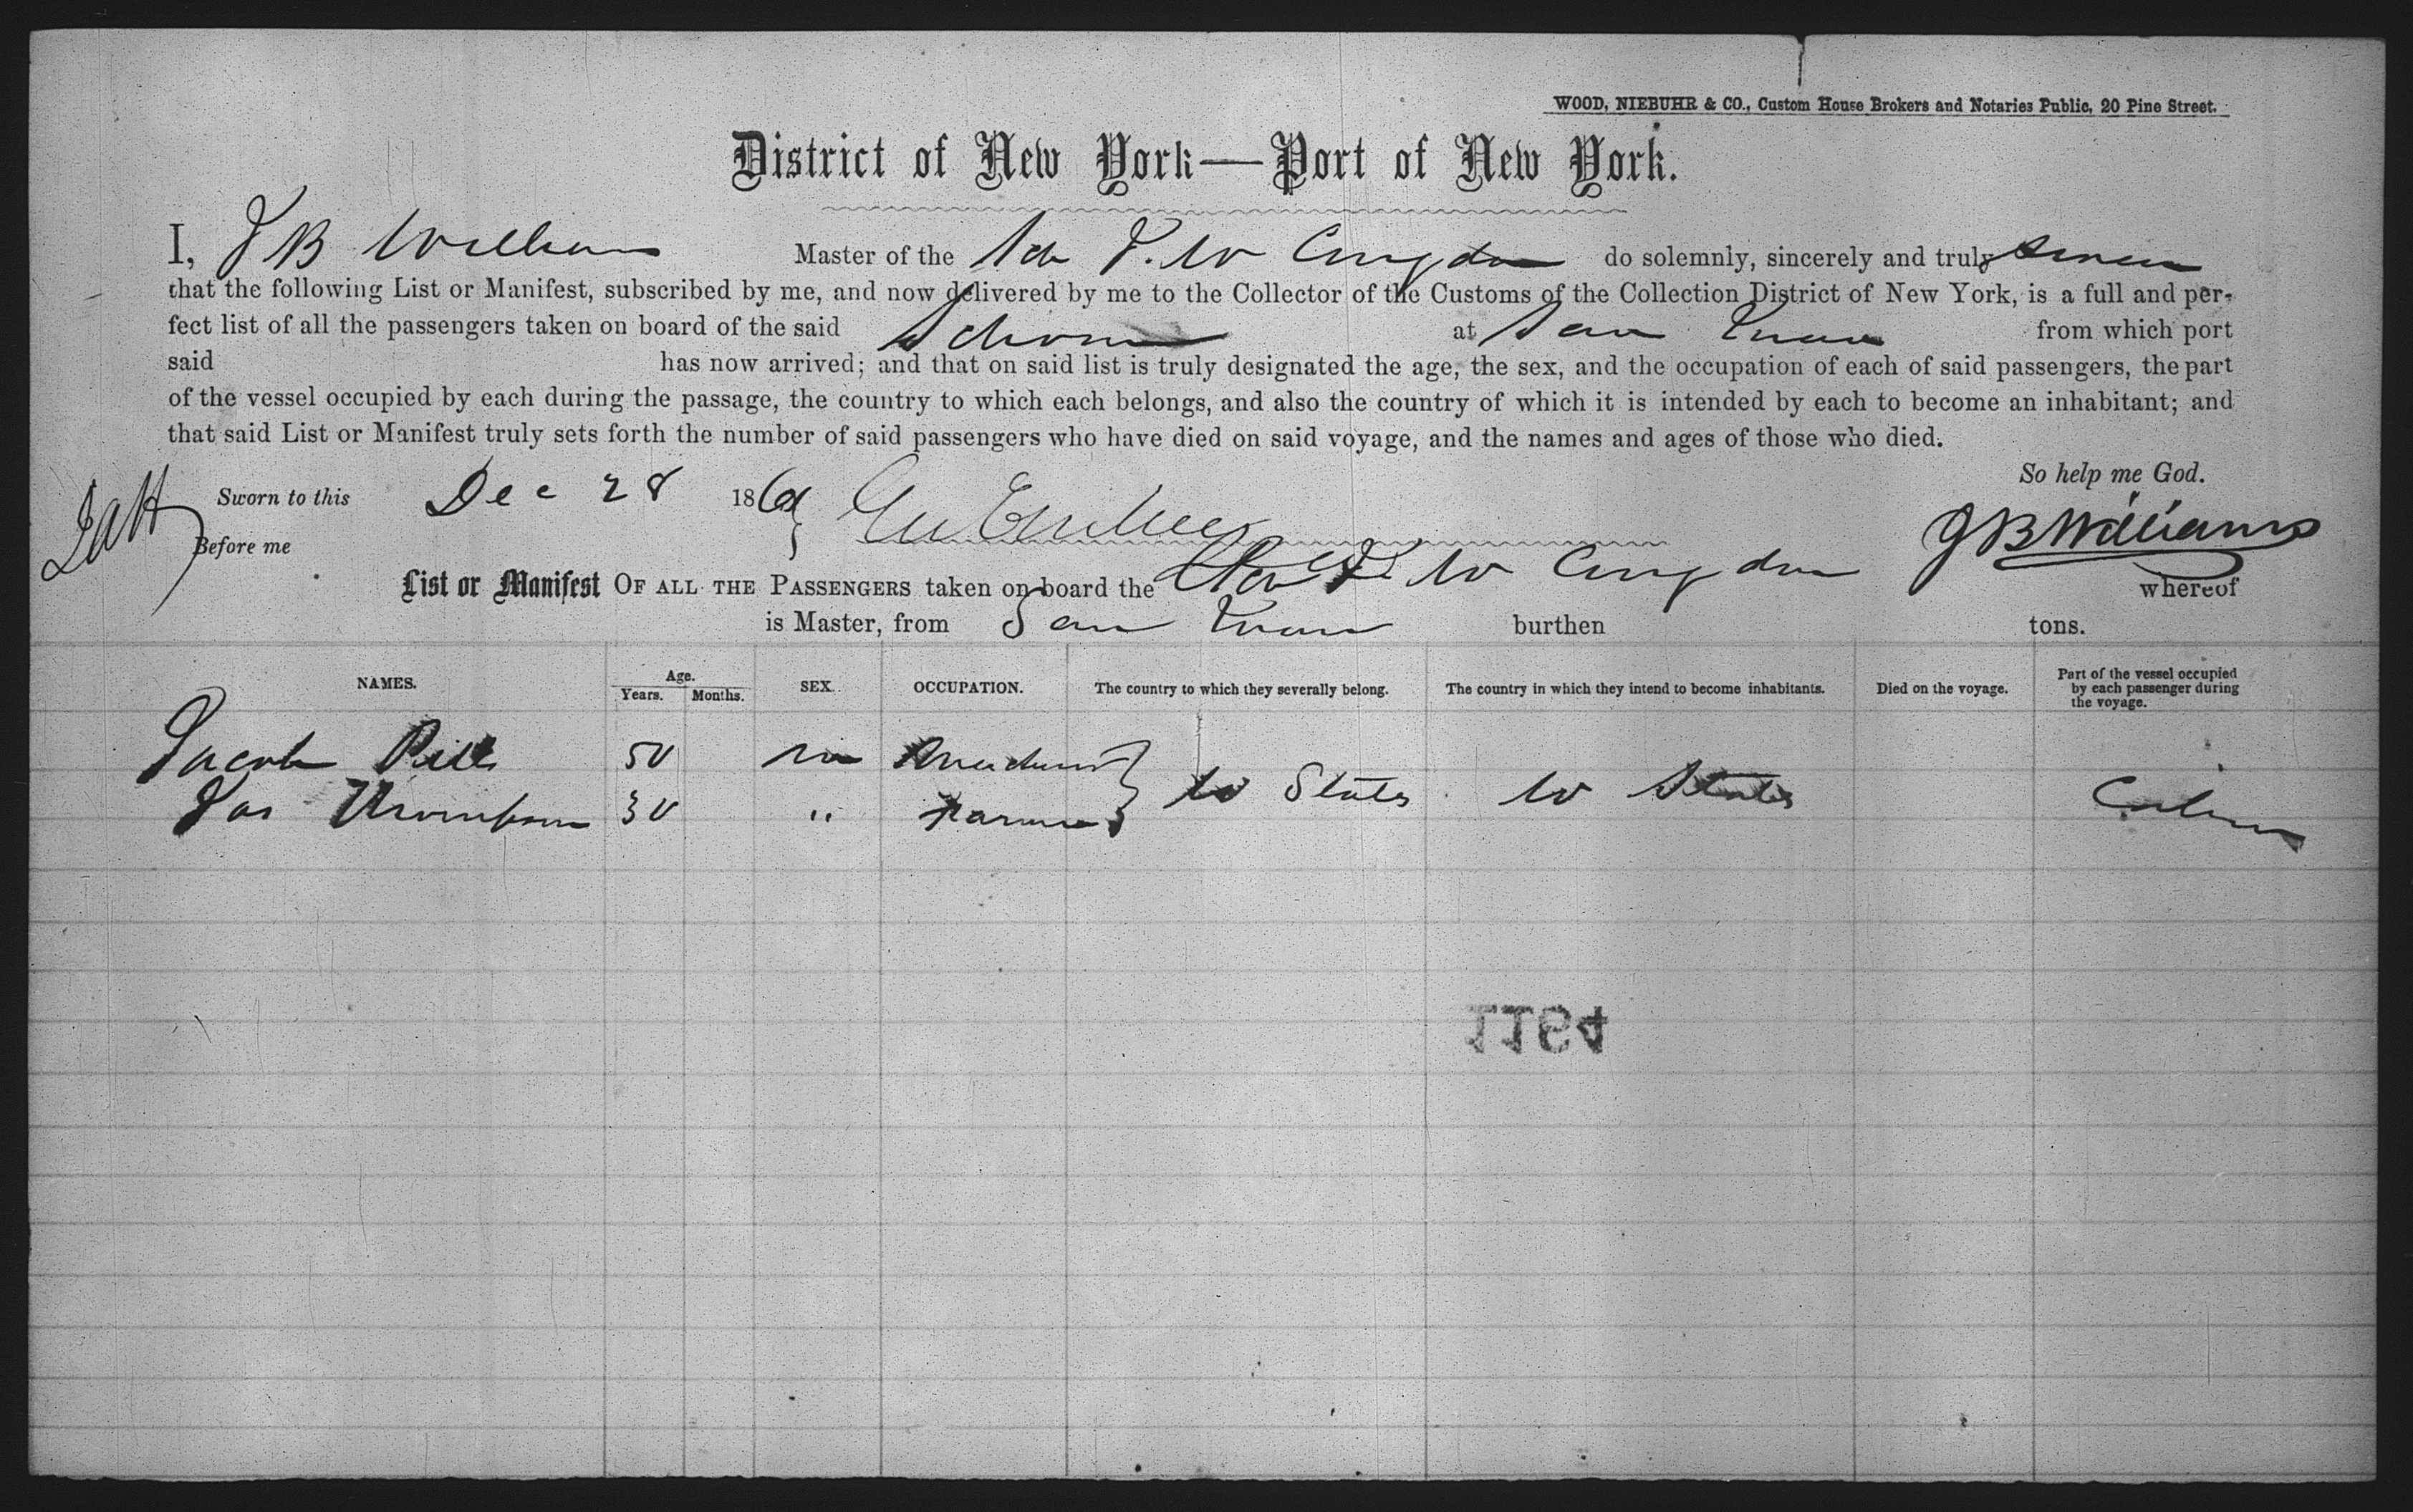 WOOD, NIEBUHR & CO., Custom House Brokers and Notaries Public, 20 Pine Street.
District of New York—Port of New York.
I, J B Williams Master of the Sch J. W Congdon do solemnly, sincerely and truly swear
that the following List or Manifest, subscribed by me, and now delivered by me to the Collector of the Customs of the Collection District of New York, is a full and per-
fect list of all the passengers taken on board of the said Schooner at San Juan from which port
said has now arrived; and that on said list is truly designated the age, the sex, and the occupation of each of said passengers, the part
of the vessel occupied by each during the passage, the country to which each belongs, and also the country of which it is intended by each to become an inhabitant; and
that said List or Manifest truly sets forth the number of said passengers who have died on said voyage, and the names and ages of those who died.
So help me God.
Sworn to this Dec 28 186
Before me
J B Williams
List or Manifest OF ALL THE PASSENGERS taken on board the J. W Congdon whereof
is Master, from San Juan burthen tons.
NAMES. Age. Years. Months. SEX. OCCUPATION. The country to which they severally belong. The country in which they intend to become inhabitants. Died on the voyage. Part of the vessel occupied by each passenger during the voyage.
Jacob 50 m Merchant
Jas Thompson 30 " Farmer U States U States Cabin
1194